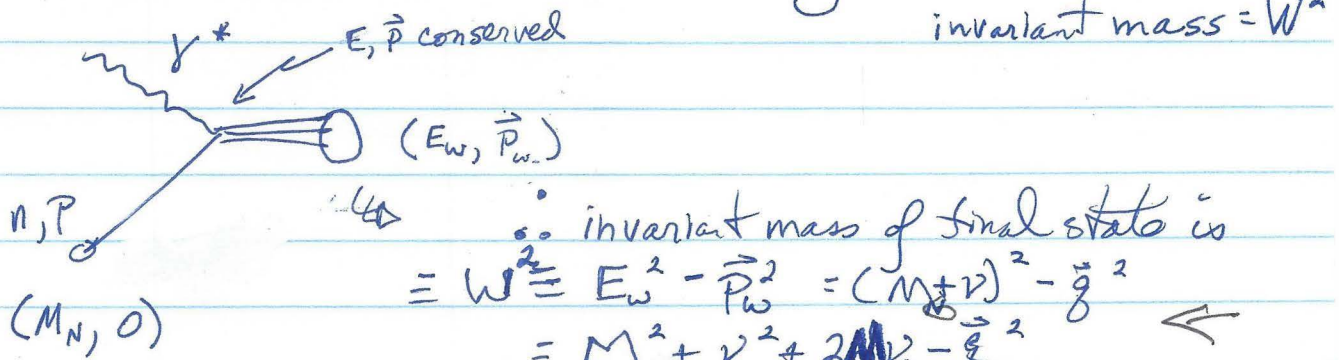 γ* E, p⃗ conserved invariant mass = W²
(E_w, p⃗_w)
n, p
∴ invariant mass of final state is
≡ W² ≡ E_w² - p⃗_w² = (M+ν)² - q⃗²
(M_N, 0)
= M² + ν² + 2Mν - q⃗²